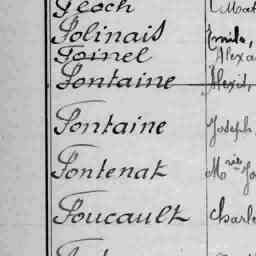 Folinais Emile,
Foinel Alexa
Fontaine Alexis,
Fontaine Joseph,
Fontenat Mrie Jo
Foucault Charle